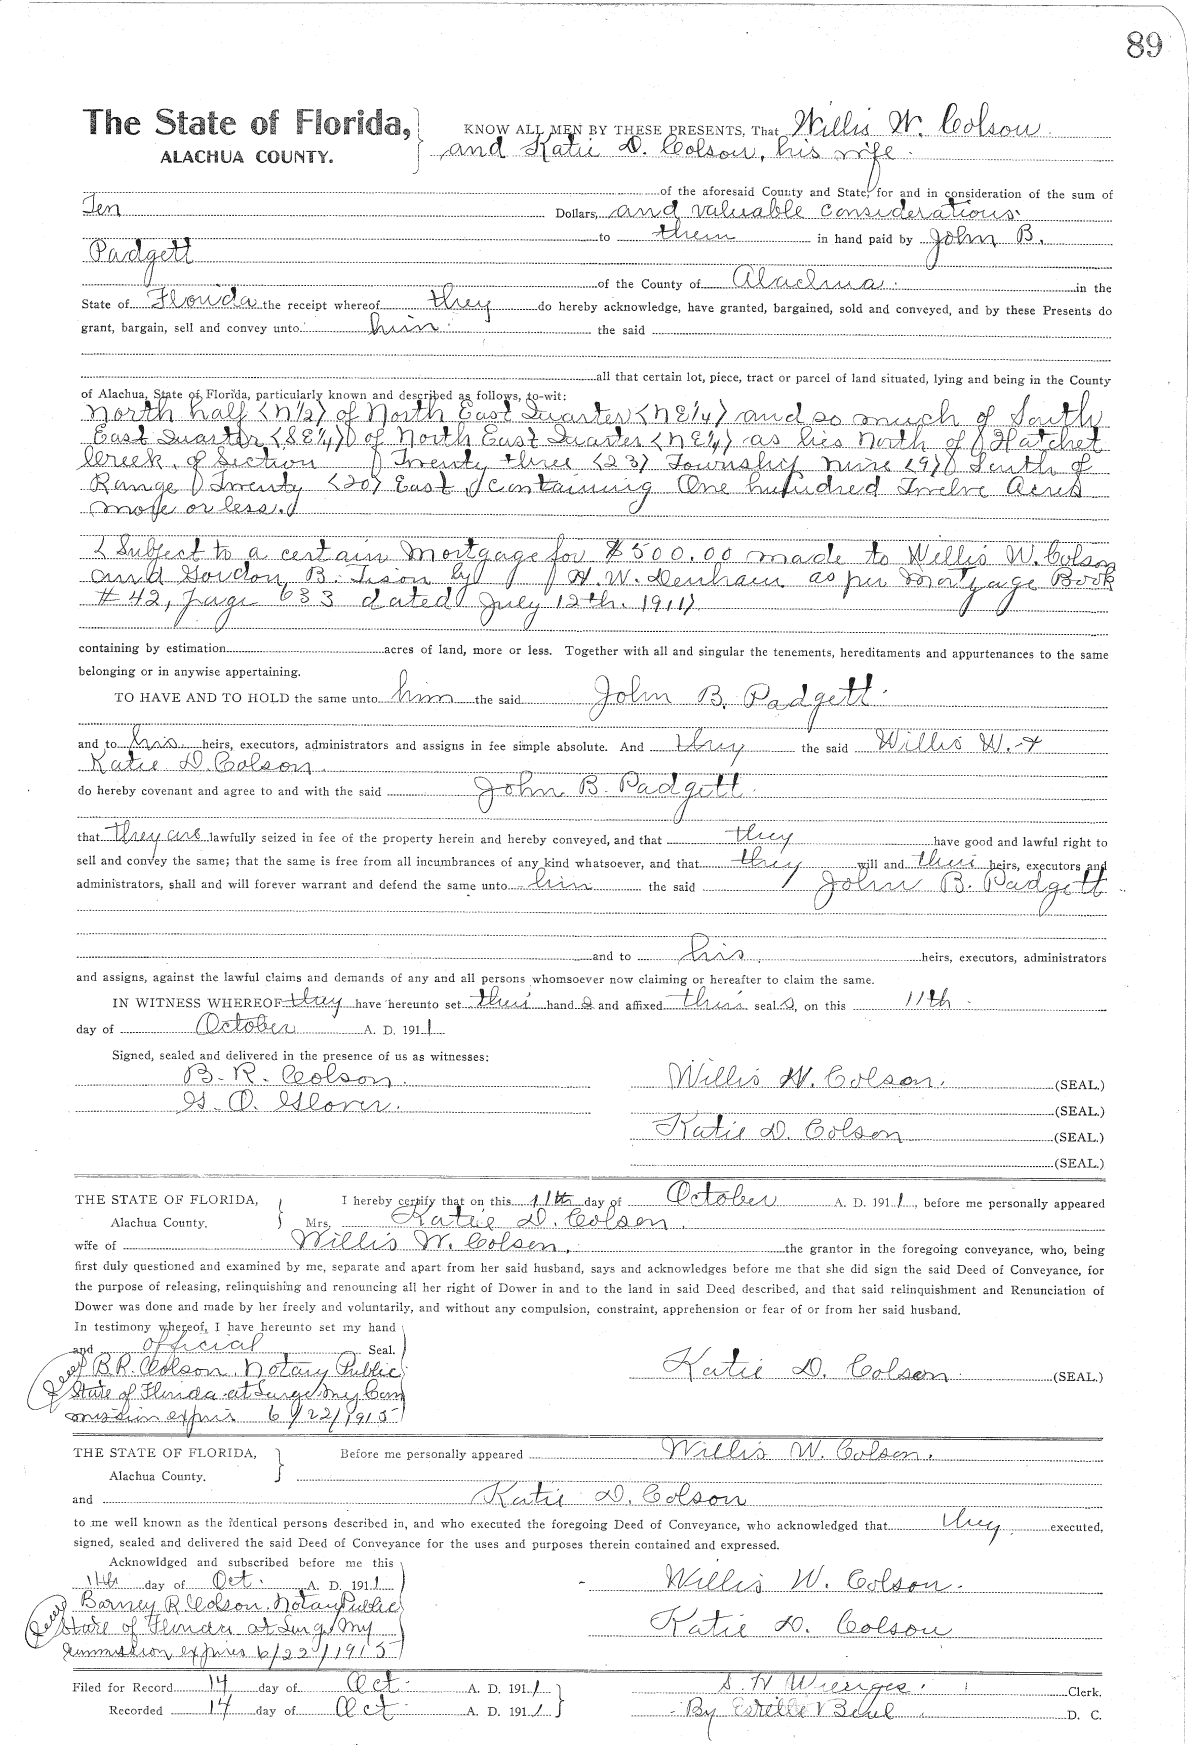 89
The State of Florida, KNOW ALL MEN BY THESE PRESENTS, That Willis W. Colson
ALACHUA COUNTY. and Katie D. Colson, his wife.
of the aforesaid County and State, for and in consideration of the sum of
Ten Dollars, and valuable considerations.
to them in hand paid by John B.
Padgett
of the County of Alachua. in the
State of Florida the receipt whereof they do hereby acknowledge, have granted, bargained, sold and conveyed, and by these Presents do
grant, bargain, sell and convey unto him. the said
all that certain lot, piece, tract or parcel of land situated, lying and being in the County
of Alachua, State of Florida, particularly known and described as follows, to-wit:
North half (N1/2) of North East Quarter (NE1/4) and so much of South
East Quarter (SE1/4) of North East Quarter (NE1/4) as lies North of Hatchet
Creek, of Section Twenty three (23) Township nine (9) South of
Range Twenty (20) East, containing One hundred Twelve Acres
more or less.
(Subject to a certain Mortgage for $500.00 made to Willis W. Colson
and Gordon B. Tison by H. W. Denham as per Mortgage Book
#42, page 633 dated July 12th. 1911)
containing by estimation acres of land, more or less. Together with all and singular the tenements, hereditaments and appurtenances to the same
belonging or in anywise appertaining.
TO HAVE AND TO HOLD the same unto him the said John B. Padgett.
and to his heirs, executors, administrators and assigns in fee simple absolute. And they the said Willis W. +
Katie D. Colson.
do hereby covenant and agree to and with the said John B. Padgett.
that they are lawfully seized in fee of the property herein and hereby conveyed, and that they have good and lawful right to
sell and convey the same; that the same is free from all incumbrances of any kind whatsoever, and that they will and their heirs, executors and
administrators, shall and will forever warrant and defend the same unto him the said John B. Padgett
and to his heirs, executors, administrators
and assigns, against the lawful claims and demands of any and all persons whomsoever now claiming or hereafter to claim the same.
IN WITNESS WHEREOF they have hereunto set their hand s and affixed their seal s, on this 11th.
day of October A. D. 191 1
Signed, sealed and delivered in the presence of us as witnesses:
B. R. Colson. Willis W. Colson. (SEAL.)
Glover. (SEAL.)
Katie D. Colson (SEAL.)
(SEAL.)
THE STATE OF FLORIDA, I hereby certify that on this 11th day of October A. D. 191 1, before me personally appeared
Alachua County. Mrs. Katie D. Colson.
wife of Willis W. Colson, the grantor in the foregoing conveyance, who, being
first duly questioned and examined by me, separate and apart from her said husband, says and acknowledges before me that she did sign the said Deed of Conveyance, for
the purpose of releasing, relinquishing and renouncing all her right of Dower in and to the land in said Deed described, and that said relinquishment and Renunciation of
Dower was done and made by her freely and voluntarily, and without any compulsion, constraint, apprehension or fear of or from her said husband.
In testimony whereof, I have hereunto set my hand
and official Seal.
Seal B. R. Colson, Notary Public Katie D. Colson (SEAL.)
State of Florida at Large My Com
mission expires 6/22/1915
THE STATE OF FLORIDA, Before me personally appeared Willis W. Colson.
Alachua County.
and Katie D. Colson
to me well known as the identical persons described in, and who executed the foregoing Deed of Conveyance, who acknowledged that they executed,
signed, sealed and delivered the said Deed of Conveyance for the uses and purposes therein contained and expressed.
Acknowldged and subscribed before me this
11th day of Oct. A. D. 191 1 Willis W. Colson.
Barney R Colson. Notary Public
Seal State of Florida at Large My Katie D. Colson
Commission expires 6/22/1915
Filed for Record 14 day of Oct. A. D. 191 1 S. H Wienges. Clerk.
Recorded 14 day of Oct A. D. 191 1 By D. C.